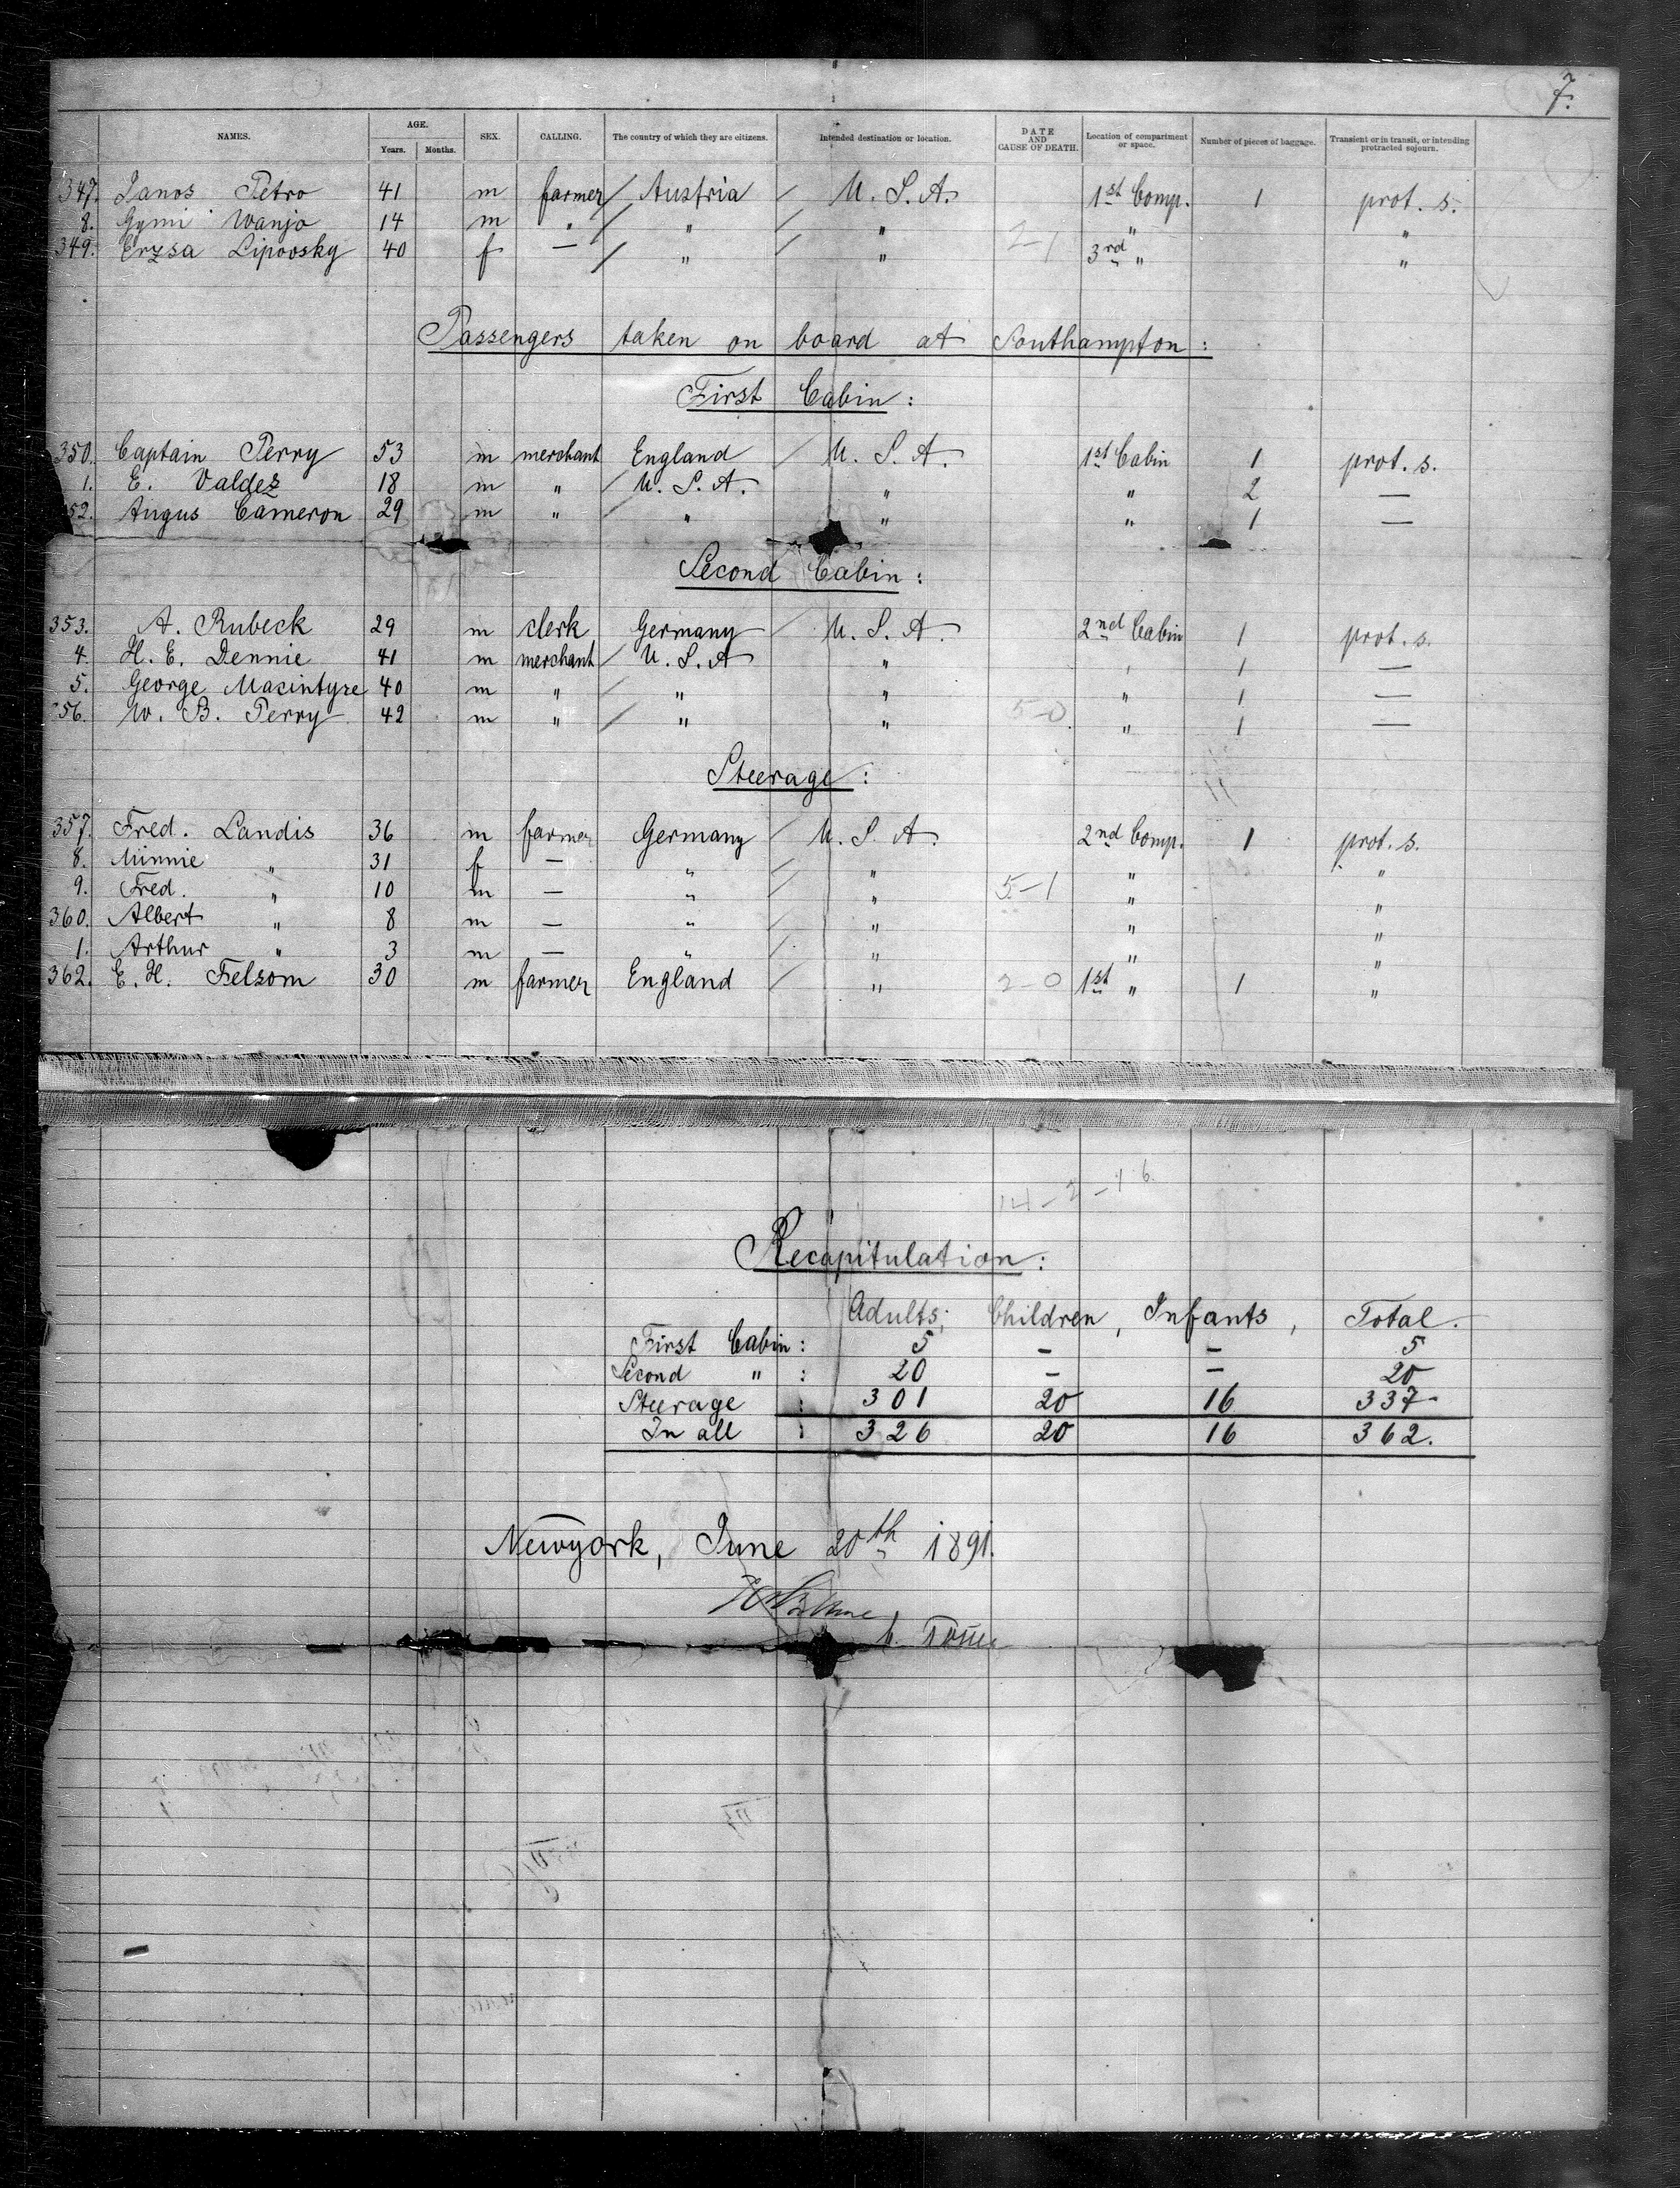 7.
NAMES. AGE. Years. Months. SEX. CALLING. The country of which they are citizens. Intended destination or location. DATE AND CAUSE OF DEATH. Location of compartment or space. Number of pieces of baggage. Transient or in transit, or intending protracted sojourn.
347. Janos Petro 41 m farmer / Austria / U. S. A. 1st Comp. 1 prot. s.
8. Gymi Wanjo 14 m " / " / " " "
349. Erzsa Lipovsky 40 f — / " / " 2-1 3rd " "
Passengers taken on board at Southampton:
First Cabin:
350. Captain Perry 53 m merchant England / U. S. A. 1st Cabin 1 prot. s.
1. E. Valdez 18 m " / U. S. A. " " 2 —
52. Angus Cameron 29 m " / " " " 1 —
Second Cabin:
353. A. Rubeck 29 m clerk Germany / U. S. A. 2nd Cabin 1 prot. s.
4. H. E. Dennie 41 m merchant / U. S. A " " 1 —
5. George Macintyre 40 m " / " " " 1 —
56. W. B. Perry 42 m " / " " 5-0 " 1 —
Steerage:
357. Fred. Landis 36 m farmer Germany / U. S. A. 2nd Comp. 1 prot. s.
8. Minnie " 31 f — " / " " "
9. Fred. " 10 m — " / " 5-1 " "
360. Albert " 8 m — " / " " "
1. Arthur " 3 m — " / " " "
362. E. H. Felsom 30 m farmer England / " 2-0 1st " 1 "
14-2-16
Recapitulation:
Adults, Children, Infants, Total.
First Cabin: 5 - - 5
Second " : 20 - - 20
Steerage : 301 20 16 337
In all : 326 20 16 362.
Newyork, June 20th 1891.